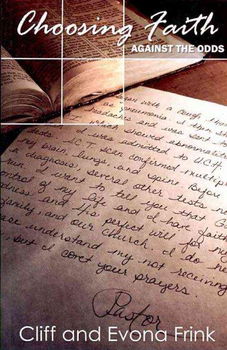 Choosing Faith
AGAINST THE ODDS
with a cough, th
pneumonia.
headaches and was
showed abnormaliti
I was admitted to UCH.
C.T. scan confirmed multiple
my brain, lungs, and spine. Before
diagnosis, several other tests ne
run. I want to tell you that G
control of my life and I have faith
ness, and his perfect will for my
family, and our church. I do no
understand my not receiving
but I covet your prayers.
Pastor
Cliff and Evona Frink